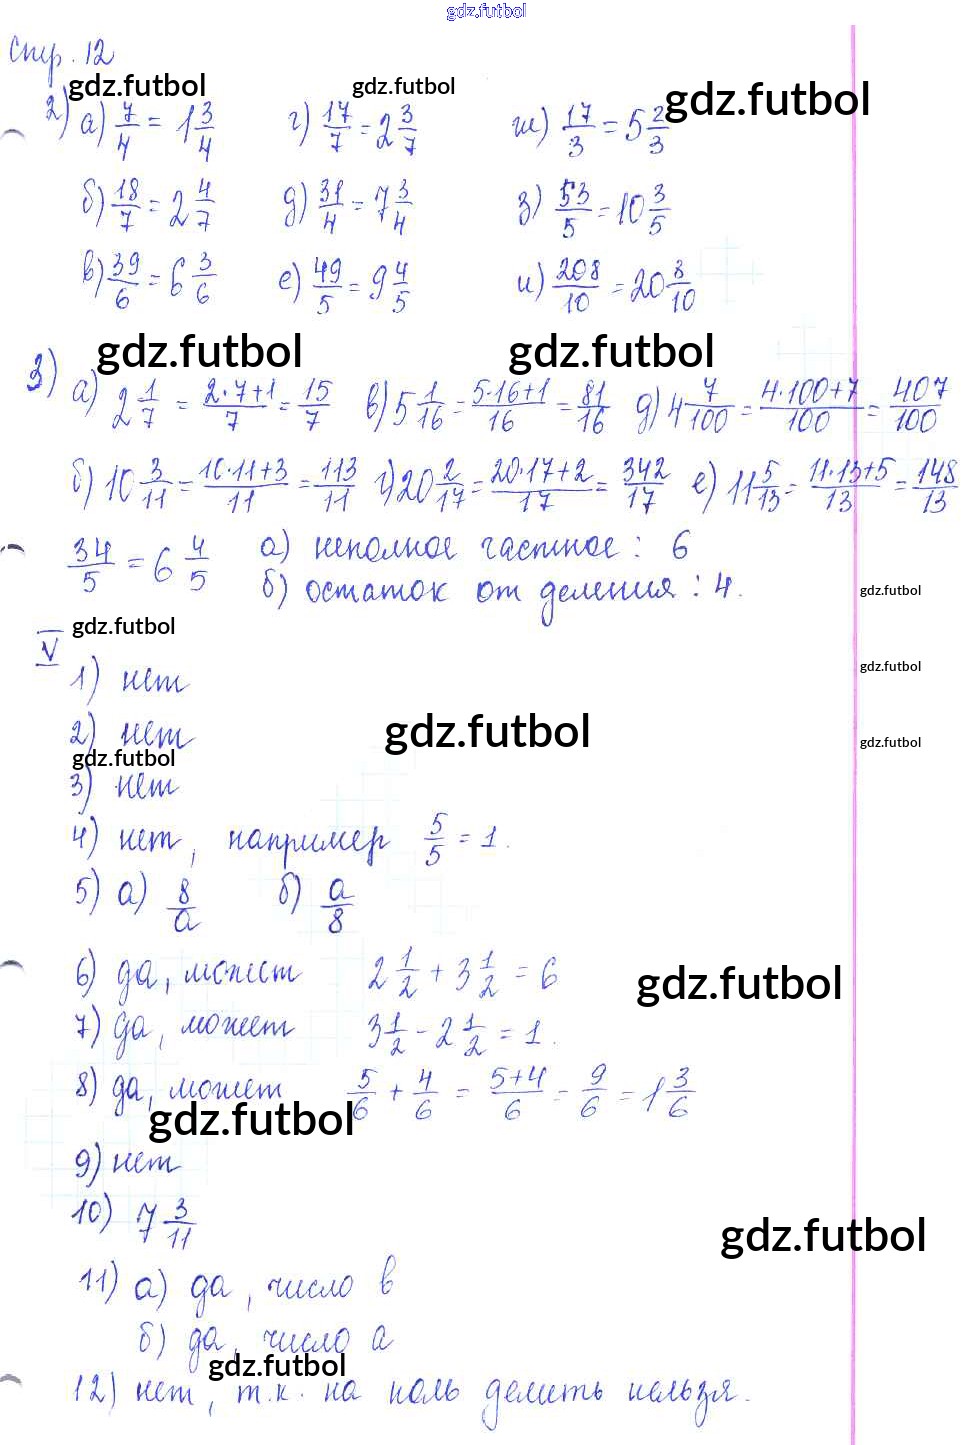 gdz.futbol
Стр. 12
gdz.futbol gdz.futbol gdz.futbol
2) а) 7/4 = 1 3/4 г) 17/7 = 2 3/7 ж) 17/3 = 5 2/3
б) 18/7 = 2 4/7 д) 31/4 = 7 3/4 з) 53/5 = 10 3/5
в) 39/6 = 6 3/6 е) 49/5 = 9 4/5 и) 208/10 = 20 8/10
gdz.futbol gdz.futbol
3) а) 2 1/7 = 2·7+1/7 = 15/7 в) 5 1/16 = 5·16+1/16 = 81/16 д) 4 7/100 = 4·100+7/100 = 407/100
б) 10 3/11 = 10·11+3/11 = 113/11 г) 20 2/17 = 20·17+2/17 = 342/17 е) 11 5/13 = 11·13+5/13 = 148/13
34/5 = 6 4/5 а) неполное частное: 6
б) остаток от деления: 4.
gdz.futbol
gdz.futbol
V
1) нет
gdz.futbol
2) нет
gdz.futbol
gdz.futbol
gdz.futbol
3) нет
4) нет, например 5/5 = 1.
5) а) 8/а б) а/8
6) да, может 2 1/2 + 3 1/2 = 6
gdz.futbol
7) да, может 3 1/2 - 2 1/2 = 1.
8) да, может 5/6 + 4/6 = 5+4/6 = 9/6 = 1 3/6
gdz.futbol
9) нет
10) 7 3/11
gdz.futbol
11) а) да, число в
б) да, число а
gdz.futbol
12) нет, т.к. на ноль делить нельзя.